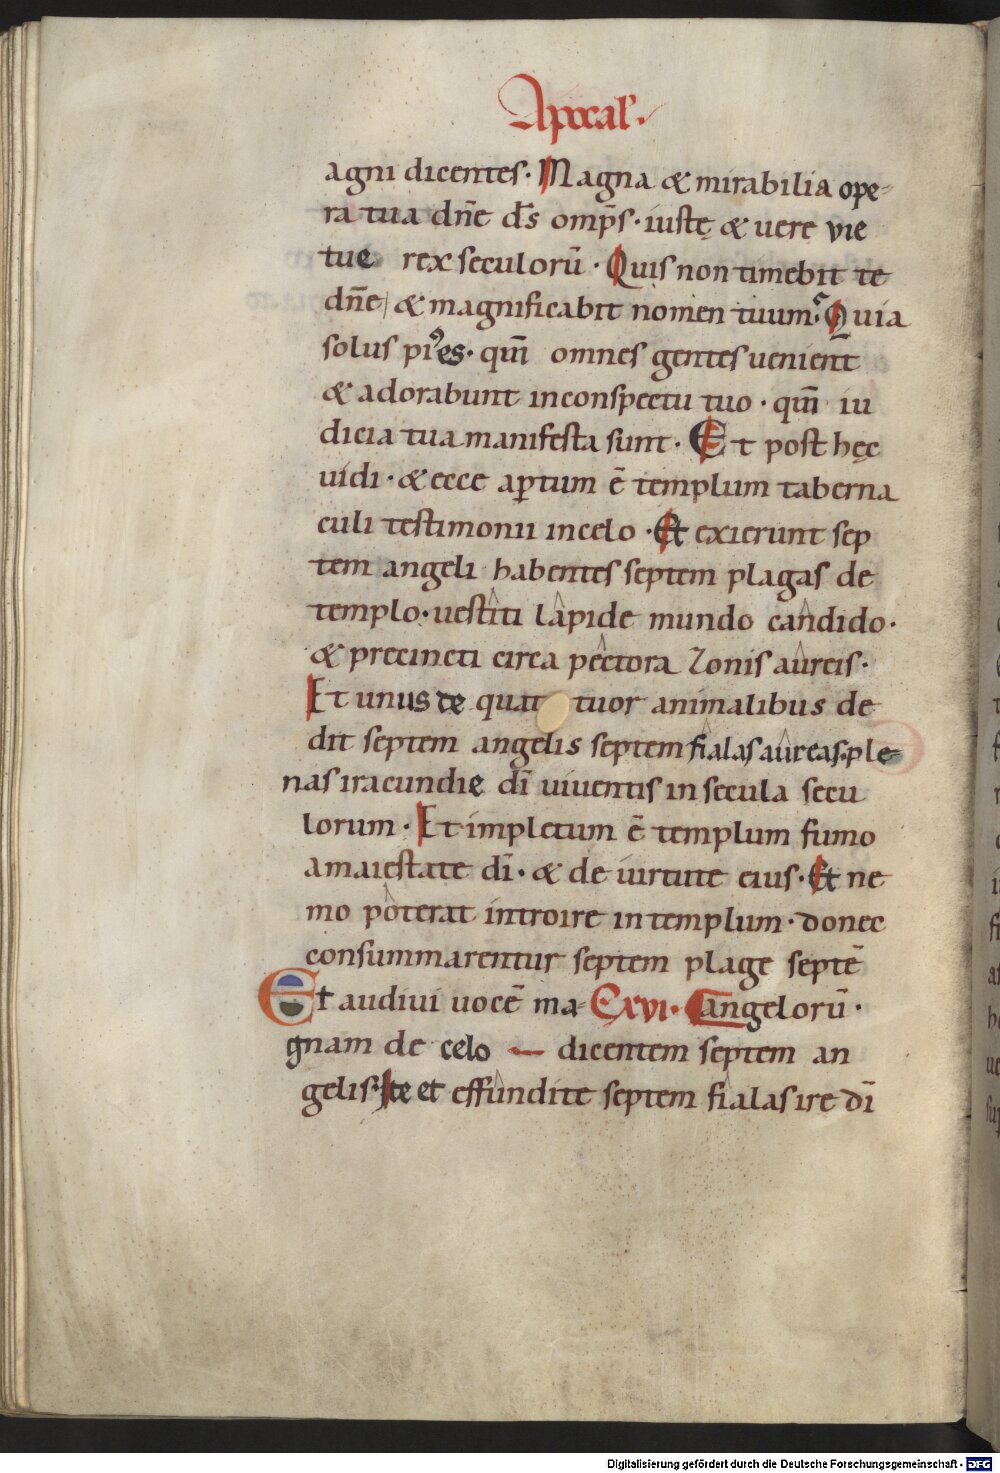 Apocał.
agni dicentes. Magna & mirabilia ope-
ra tua dn̄e ds̄ omps̄. iustę & uere vie
tue rex seculorū. Quis non timebit te
dn̄e, & magnificabit nomen tuum? Quia
solus pius es. qm̄ omnes gentes uenient
& adorabunt inconspectu tuo. qm̄ iu
dicia tua manifesta sunt. Et post hęc
uidi. & ecce aꝑtum ē templum taberna
culi testimonii incelo. Et exierunt sep
tem angeli habentes septem plagas de
templo. uestiti lapide mundo candido.
& precincti circa pectora zonis aureis.
Et unus de quat tuor animalibus de
dit septem angelis septem fialas aureas. ple-
nas iracundie dī uiuentis in secula secu
lorum. Et impletum ē templum fumo
amaiestate dī. & de uirtute eius. Et ne
mo poterat introire in templum. donec
consummarentur septem plage septē
Et audiui uocē ma- C xvi. angelorū.
gnam de celo — dicentem septem an
gelis. Ite et effundite septem fialas ire dī
Digitalisierung gefördert durch die Deutsche Forschungsgemeinschaft - DFG